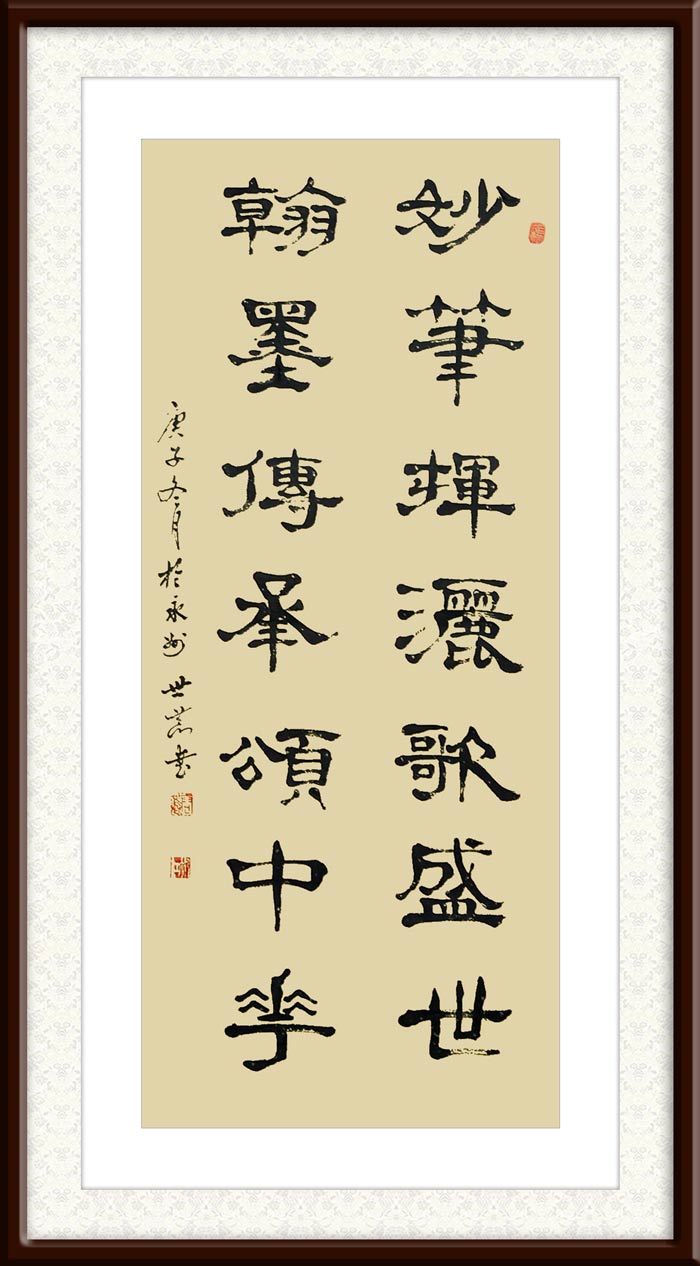 妙筆輝灑歌盛世
翰墨傳承頌中華
庚子冬月於永州世崇書